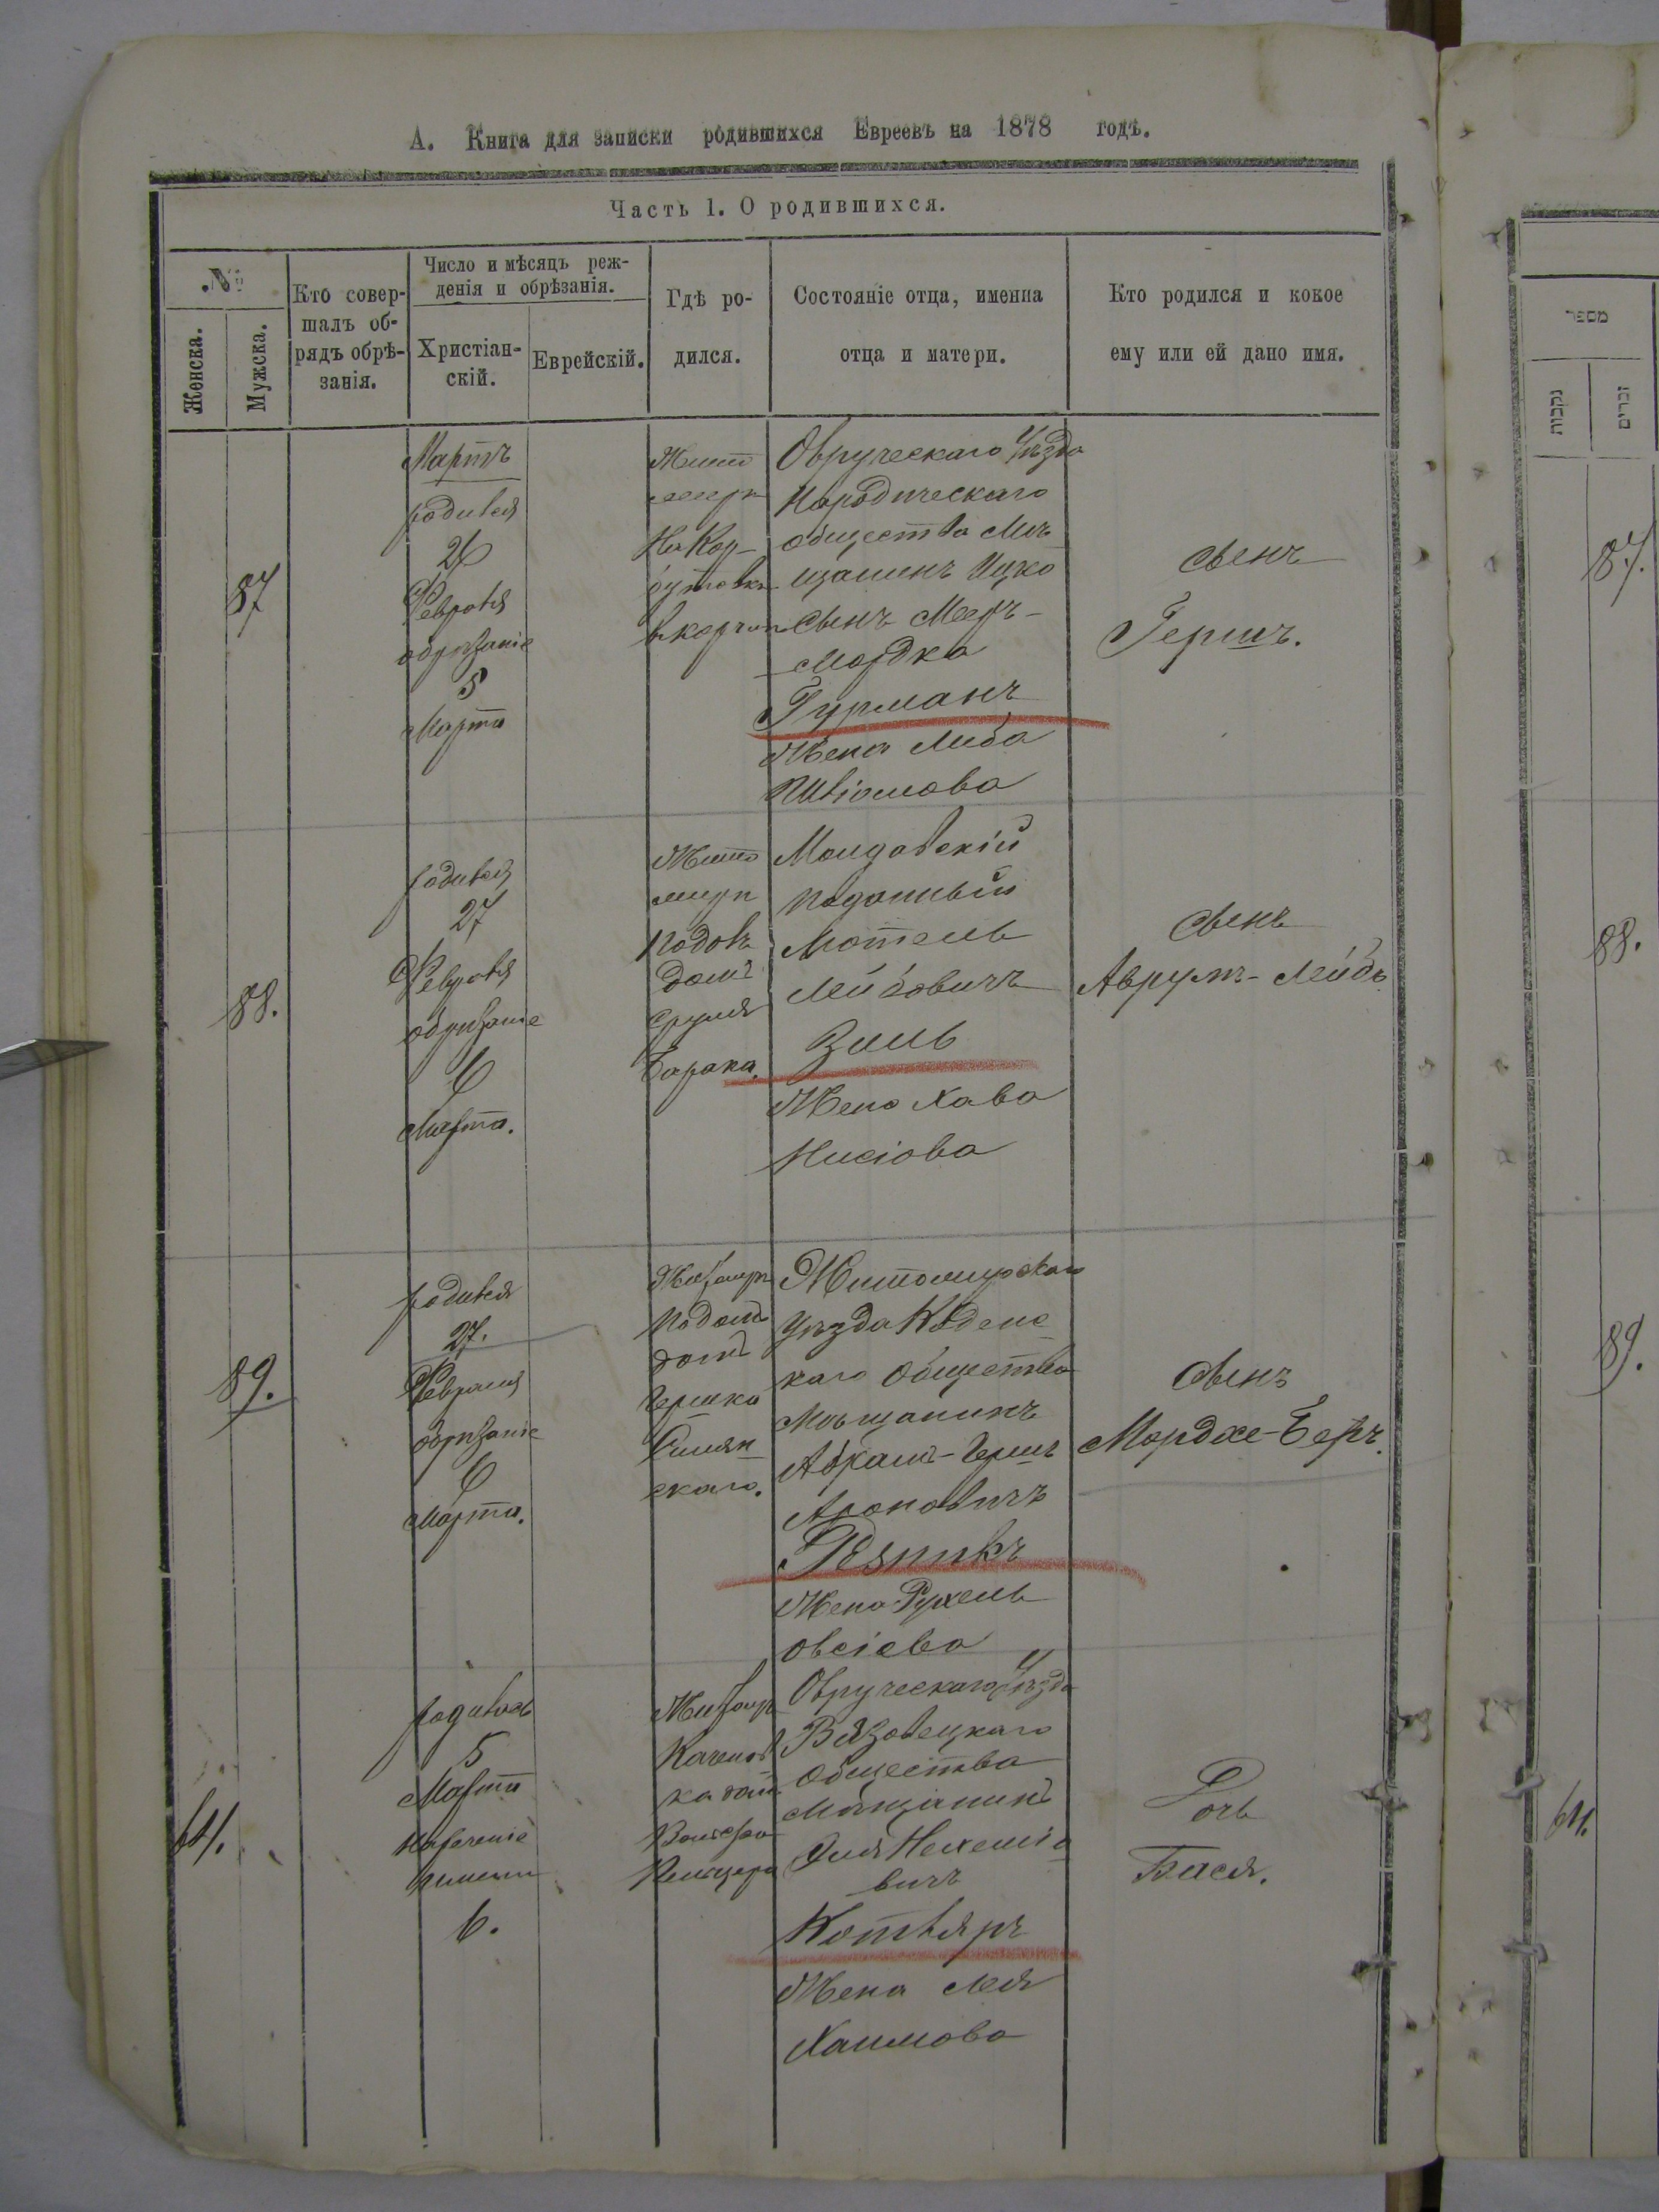 А. Книга для записки родившихся Евреевъ на 1878 годъ.
Часть 1. О родившихся.
№
Женска.
Мужска.
Кто совер-
шалъ об-
рядъ обрѣ-
занія.
Число и мѣсяцъ реж-
денія и обрѣзанія.
Христіан-
скій.
Еврейскій.
Гдѣ ро-
дился.
Состояніе отца, именна
отца и матери.
Кто родился и кокое
ему или ей дано имя.
87
Мартъ
родился
26
Февраля
обрѣзаніе
5
Марта
Жито
миръ
въ корчмѣ
Овручскаго Уѣзда
Народическаго
общества Мѣ
щанинъ Ицко
сынъ Меер-
Мордка
Гурманъ
Жена Либа
сынъ
Гершъ.
88.
родился
27
Февраля
обрѣзаніе
6
Марта.
Жито
миръ
домъ
Сруля
Барака.
Молдавскій
подданный
Мотель
Лейбовичъ
Зиль
Жена Хава
Нисіова
сынъ
Аврумъ-Лейбъ
89.
родился
27.
Февраля
обрѣзаніе
6
Марта.
Житомиръ
домъ
Гершка
скаго.
Житомирскаго
Уѣзда Коденс
каго Общества
Мѣщанинъ
Абрамъ-Гершъ
Ароновичъ
Рѣзникъ
Жена Рухель
Овсіева
сынъ
Мордхе-Беръ.
64.
родилась
5
Марта
нареченіе
имени
6.
Житомиръ
Овручскаго Уѣзда
Общества
Мѣщанинъ
вичъ
Котляръ
Жена Лея
Хаимова
Дочь
Бася.
מספר
נקבות
זכרים
87.
88.
89.
64.